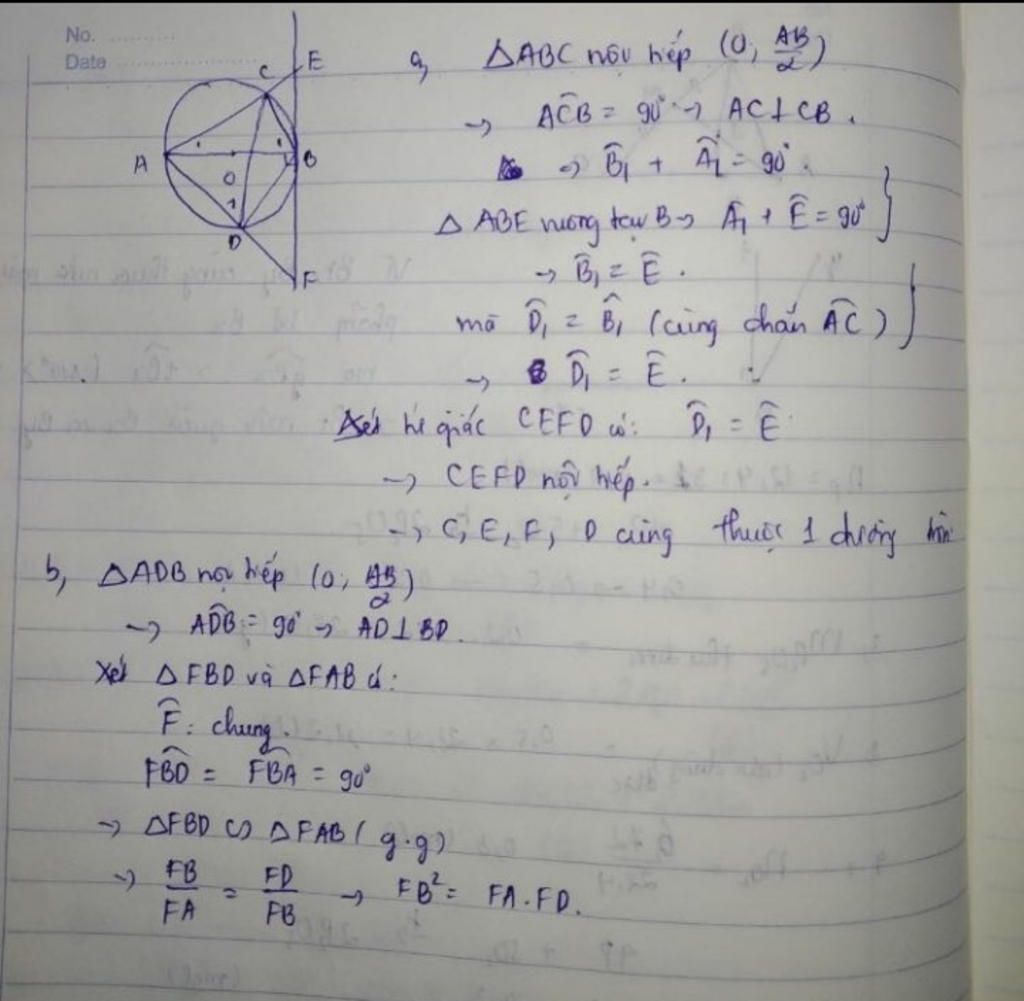 No. ............
Date ....................
C E
A B
O
1
D
F
a, △ABC nội tiếp (O; AB/2)
→ ACB̂ = 90° → AC⊥CB.
→ B̂₁ + Â₁ = 90°.
△ABE vuông tại B → Â₁ + Ê = 90°
→ B̂₁ = Ê.
mà D̂₁ = B̂₁ (cùng chắn AC)
→ D̂₁ = Ê.
Xét tứ giác CEFD có: D̂₁ = Ê
→ CEFD nội tiếp.
→ C, E, F, D cùng thuộc 1 đường tròn
b, △ADB nội tiếp (O; AB/2)
→ ADB̂ = 90° → AD⊥BD.
Xét △FBD và △FAB có:
F̂: chung.
FBD̂ = FBÂ = 90°
→ △FBD ∽ △FAB (g.g)
→ FB/FA = FD/FB → FB² = FA.FD.